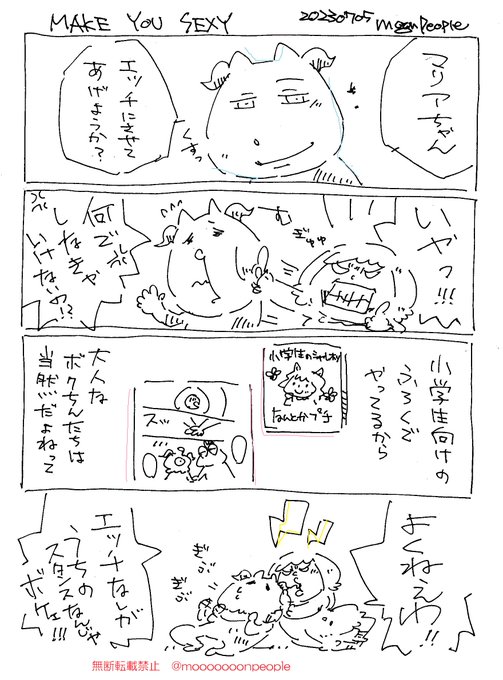 MAKE YOU SEXY
20230705
moonpeople
マリアちゃん
エッチにさせて
あげようか?
くすっ
いやっ!!!
む
ぎゅゅ
何でが
しなきゃ
いけないの!?
小学生向けの
ふろくで
やってるから
なんとかプチ
スッ
大人な
ボクちんたちは
当然だよねって
よくねえわ!!
ぎぶ
ぎぶ
エッチなしが
うちの
スタンスなんじゃ
ボケェ!!!
無断転載禁止 @mooooooonpeople